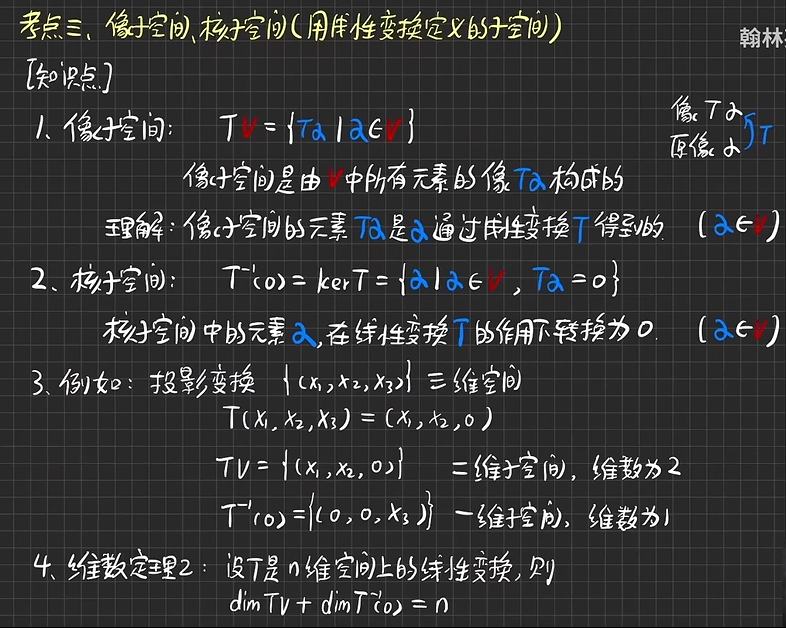 考点三、像子空间、核子空间(用线性变换定义的子空间)
翰林
[知识点]
1、像子空间： TV = {Tα | α∈V}
像 Tα
原像 α
T
像子空间是由V中所有元素的像Tα构成的
理解：像子空间的元素Tα是α通过线性变换T得到的. (α∈V)
2、核子空间： T⁻¹(0) = kerT = {α | α∈V, Tα = 0}
核子空间中的元素α,在线性变换T的作用下转换为0. (α∈V)
3、例如：投影变换 {(x₁, x₂, x₃)} 三维空间
T(x₁, x₂, x₃) = (x₁, x₂, 0)
TV = {(x₁, x₂, 0)} 二维子空间, 维数为2
T⁻¹(0) = {(0, 0, x₃)} 一维子空间, 维数为1
4、维数定理2：设T是n维空间上的线性变换,则
dimTV + dimT⁻¹(0) = n